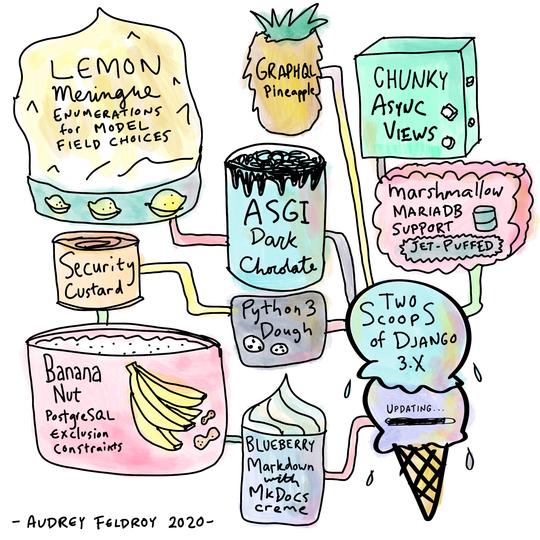 LEMON
Meringue
ENUMERATIONS
for MODEL
FIELD CHOICES
GRAPHQL
Pineapple
CHUNKY
ASYNC
VIEWS
marshmallow
MARIADB
SUPPORT
JET-PUFFED
ASGI
Dark
Chocolate
Security
Custard
Python 3
Dough
TWO
SCOOPS
of DJANGO
3.X
UPDATING...
Banana
Nut
PostgreSQL
Exclusion
Constraints
BLUEBERRY
Markdown
with
MkDocs
creme
- AUDREY FELDROY 2020-